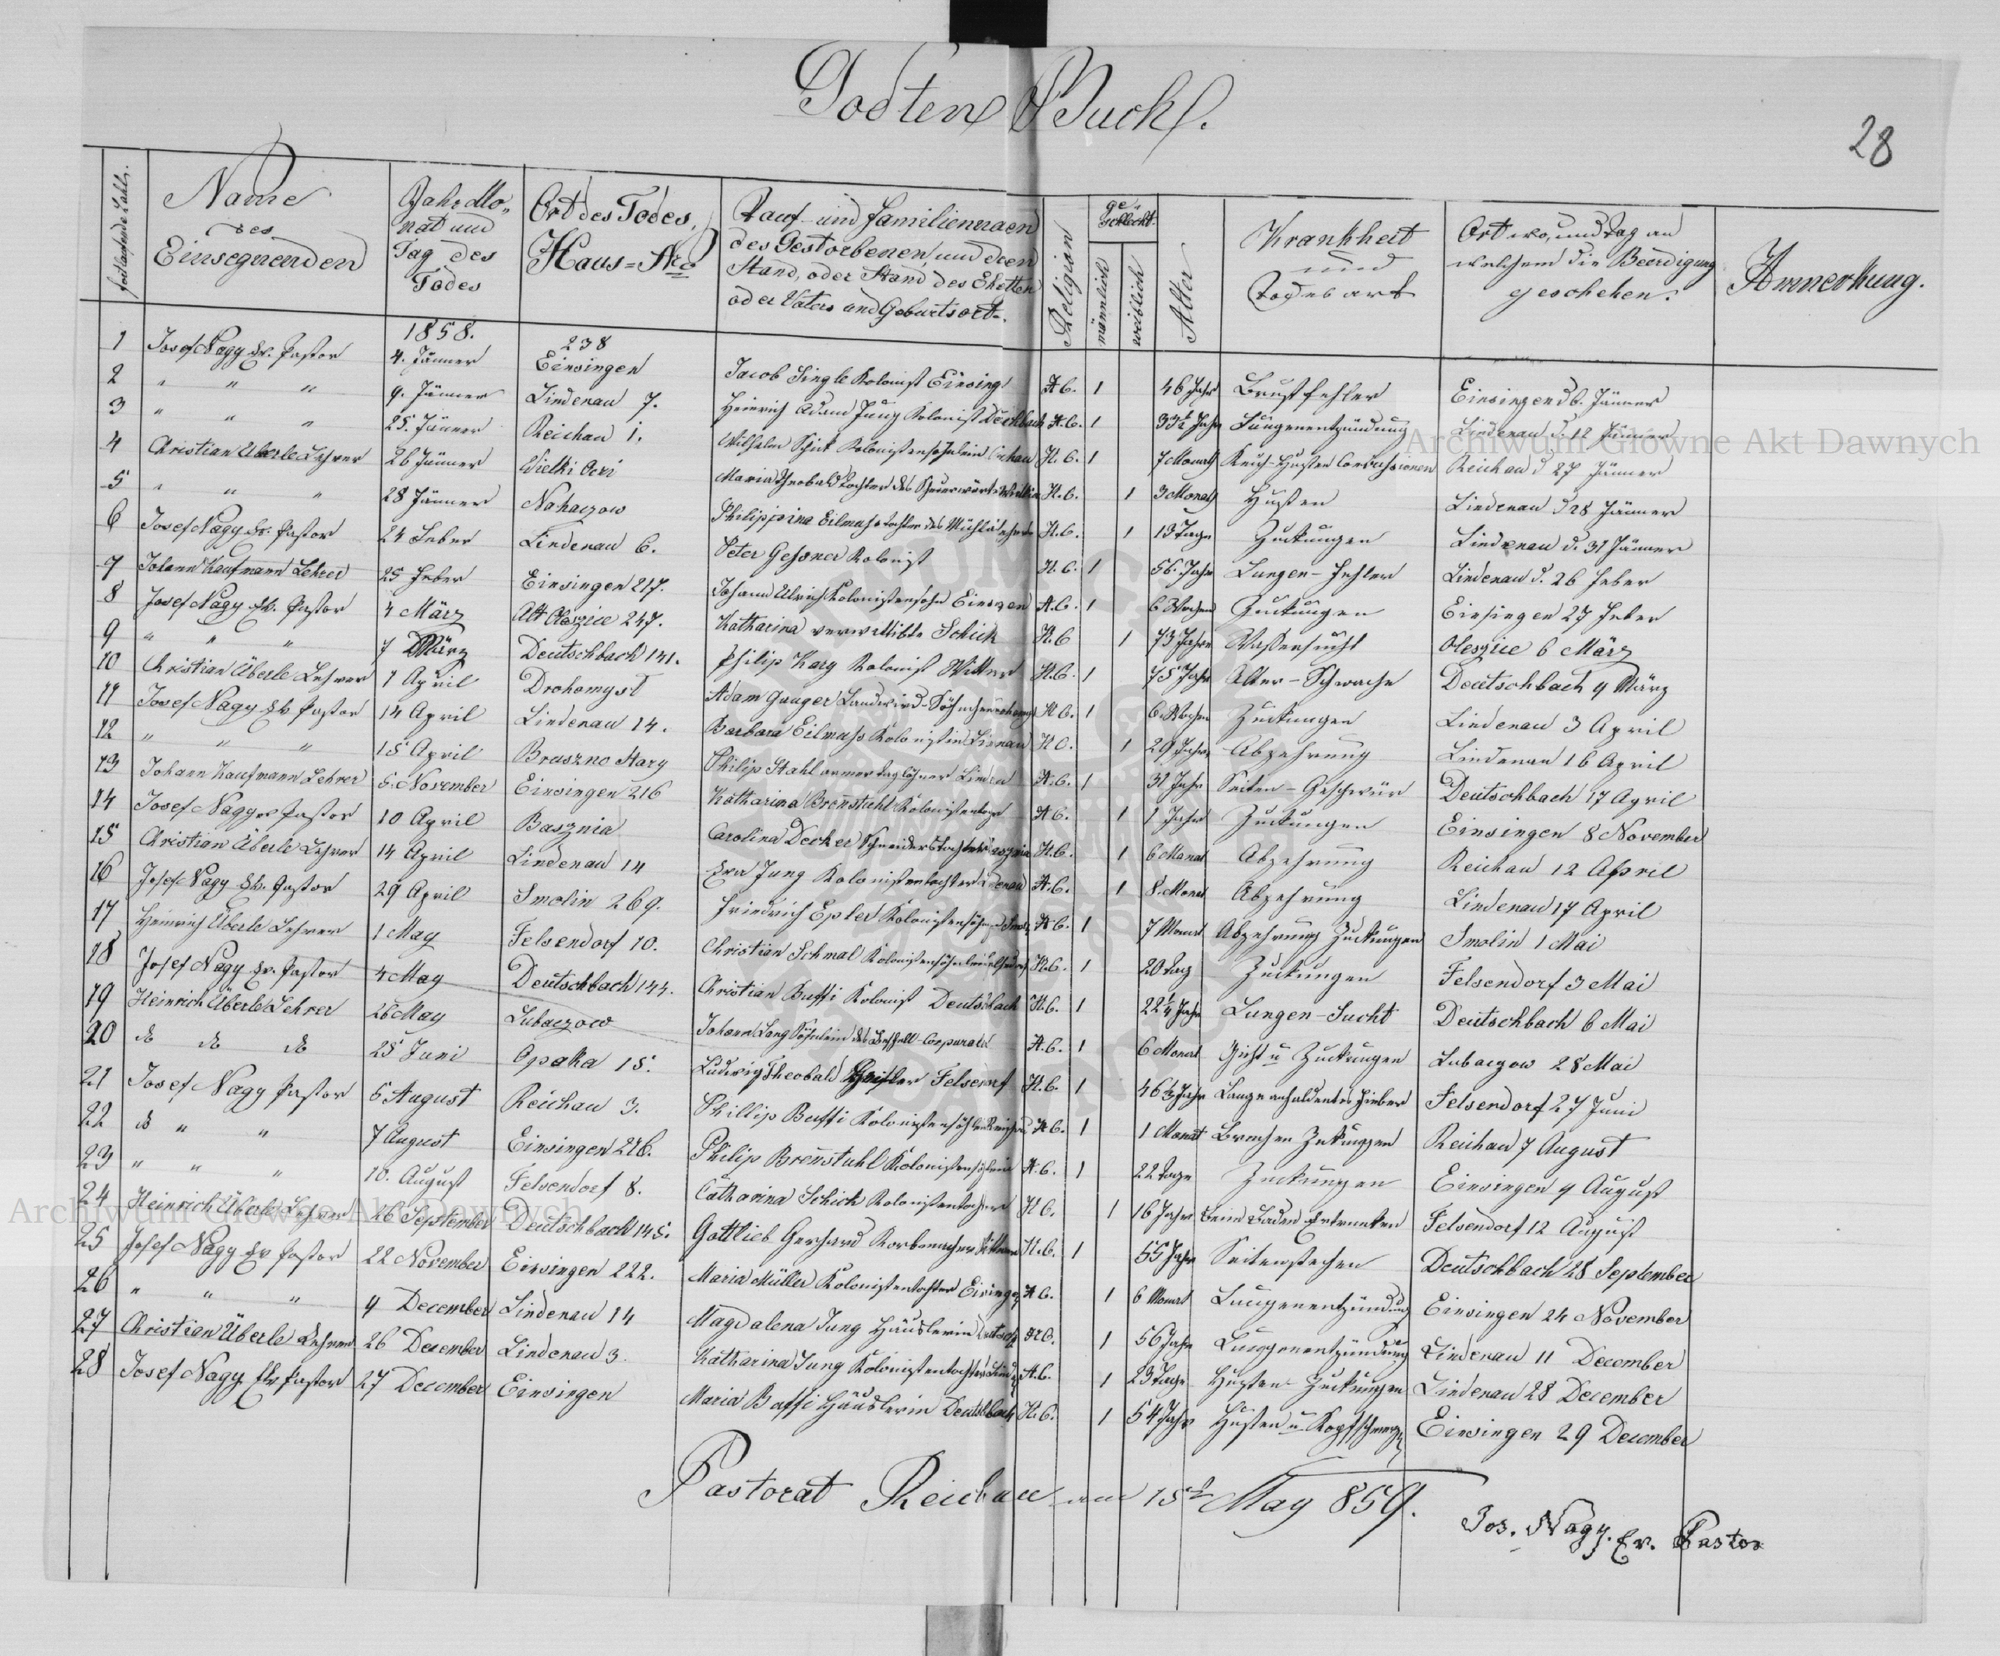 Todten Buch.
28
fortlaufende Zahl.
Name des Einsegnenden
Jahr, Monat und Tag des Todes
Ort des Todes, Haus-Nro
Tauf- und Familiennaen des Gestorbenen und deen Stand, oder Stand des Ehetten oder Vaters and Geburtsort.
Religion
Geschlecht
männlich
weiblich
Alter
Krankheit und Todesart
Ort wo, und Tag an welchem die Beerdigung geschehen.
Anmerkung.
1858.
1 Josef Nagy Ev. Pastor 4. Jänner Einsingen 238 Jacob Single Kolonist Einsing A.C. 1 46 Jahr Brustfehler Einsingen d 6. Jänner
2 " " " 9. Jänner Lindenau 7. Heinrich Adam Jung Kolonist A.C. 1 33½ Jahr Lungenentzündung Lindenau d. 12 Jänner
3 " " " 25. Jänner Reichau 1. Wilhelm Schik Kolonistensöhnlein A.C. 1 7 Monath Keuch-Husten Reichau d 27 Jänner
4 Christian Überle Lehrer 26 Jänner Wielki Oczi Maria Theobald Tochter des A.C. 1 3 Monath Husten Lindenau d 28 Jänner
5 " " " 28 Jänner Nahaczow Philippina Eilmess Tochter des A.C. 1 13 Tage Zuckungen Lindenau d. 31 Jänner
6 Josef Nagy Ev. Pastor 24 Feber Lindenau 6. Peter Gessner Kolonist A.C. 1 56 Jahr Lungen-Fehler Lindenau d. 26 Feber
7 Johann Kaufmann Lehrer 25 Feber Einsingen 217. Johann Ulrich Kolonistensohn Einsgen A.C. 1 6 Wochen Zuckungen Einsingen 27 Feber
8 Josef Nagy Ev. Pastor 4 März Alt Oleszice 247. Katharina verwittibte Schick A.C. 1 73 Jahre Wassersucht Oleszice 6 März
9 " " " 7 März Deutschbach 141. Philip Karg Kolonist Wittwer A.C. 1 75 Jahr Alter-Schwäche Deutschbach 9 März
10 Christian Überle Lehrer 1 April Drohomysl Adam Gauger A.C. 1 6. Wochen Zuckungen Lindenau 3 April
11 Josef Nagy Ev Pastor 14 April Lindenau 14. Barbara Eilmess Kolonistin Lienau A.C. 1 29 Jahre Abzehrung Lindenau 16 April
12 " " " 15 April Bruszno Stary Philip Stahl armer Taglöhner A.C. 1 31 Jahr Seiten-Geschwür Deutschbach 17 April
13 Johann Kaufmann Lehrer 6. November Einsingen 216 Katharina Brennstuhl A.C. 1 1 Jahr Zuckungen Einsingen 8 November
14 Josef Nagy Pastor 10 April Basznia Carolina Decker A.C. 1 6 Monat Abzehrung Reichau 12 April
15 Christian Überle Lehrer 14 April Lindenau 14 Eva Jung Kolonistentochter A.C. 1 8. Monat Abzehrung Lindenau 17 April
16 Josef Nagy Ev. Pastor 29 April Smolin 269. Friedrich Epler A.C. 1 7 Monat Abzehrung Zuckungen Smolin 1 Mai
17 Heinrich Überle Lehrer 1 May Felsendorf 10. Christian Schmal A.C. 1 20 Tag Zuckungen Felsendorf 3 Mai
18 Josef Nagy Ev. Pastor 4 May Deutschbach 144. Christian Buffi Kolonist Deutschbach A.C. 1 22¼ Jahr Lungen-Sucht Deutschbach 6 Mai
19 Heinrich Überle Lehrer 26 May Lubaczow Johann Lang Söhnlein des A.C. 1 6 Monat Gicht u Zuckungen Lubaczow 28 Mai
20 do do do 25 Juni Opaka 15. Ludwig Theobald A.C. 1 46½ Jahr Lange anhaldentes Fieber Felsendorf 27 Juni
21 Josef Nagy Pastor 5 August Reichau 3. Phillip Buffi A.C. 1 1 Monat Reichau 7 August
22 do " " 7 August Einsingen 216. Philip Brennstuhl A.C. 1 22 Tage Zuckungen Einsingen 9 August
23 " " " 10. August Felsendorf 8. Catharina Schick Kolonistentochter A.C. 1 16 Jahr Beim Baden Ertrunken Felsendorf 12 August
24 Heinrich Überle Lehrer 26 September Deutschbach 145. Gottlieb Gerhard Korbmacher A.C. 1 55 Jahr Seitenstechen Deutschbach 28 September
25 Josef Nagy Ev Pastor 22 November Einsingen 222. Maria Müller Kolonistentochter A.C. 1 6 Monat Lungenentzündung Einsingen 24 November
26 " " " 9 December Lindenau 14 Magdalena Jung Häuslerin A.C. 1 56 Jahr Lungenentzündung Lindenau 11 December
27 Christian Überle Lehrer 26 December Lindenau 3 Katharina Jung Kolonistentochter A.C. 1 23 Tage Husten Zuckungen Lindenau 28 December
28 Josef Nagy Ev Pastor 27 December Einsingen Maria Buffi Häuslerin Deutschbach A.C. 1 54 Jahr Husten u Kopfschmerz Einsingen 29 December
Pastorat Reichau am 15t May 859.
Jos. Nagy. Ev. Pastor
Archiwum Główne Akt Dawnych
Archiwum Główne Akt Dawnych